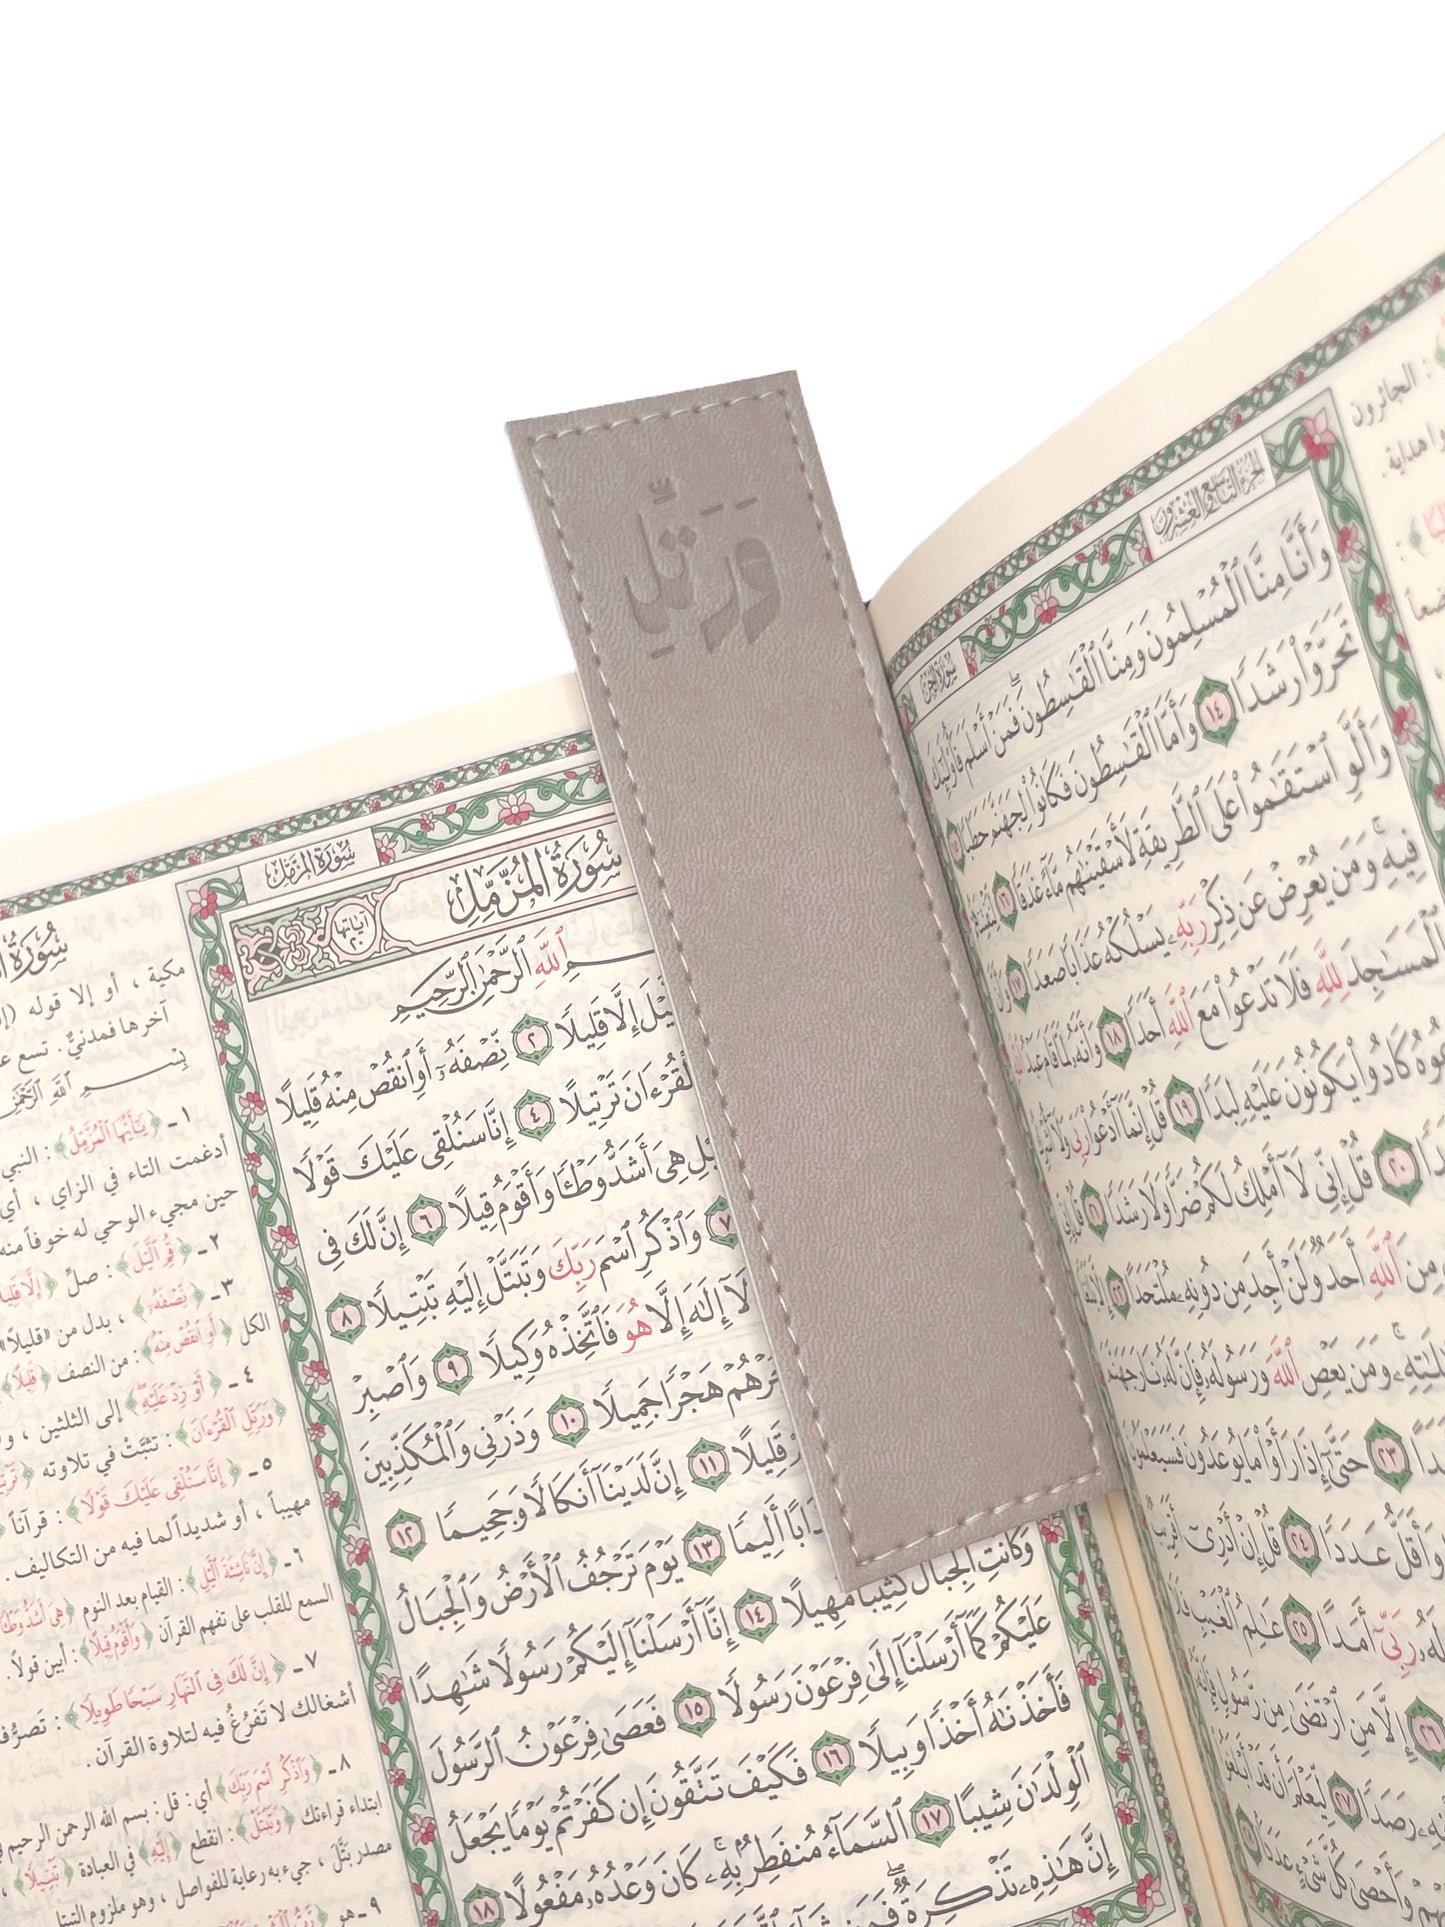 وَرَتِّلِ
الجزء التاسع والعشرون
سورة الجن
وَأَنَّا مِنَّا ٱلْمُسْلِمُونَ وَمِنَّا ٱلْقَٰسِطُونَ ۖ فَمَنْ أَسْلَمَ فَأُو۟لَٰٓئِكَ
تَحَرَّوْا۟ رَشَدًا ١٤ وَأَمَّا ٱلْقَٰسِطُونَ فَكَانُوا۟ لِجَهَنَّمَ حَطَبًا ١٥
وَأَلَّوِ ٱسْتَقَٰمُوا۟ عَلَى ٱلطَّرِيقَةِ لَأَسْقَيْنَٰهُم مَّآءً غَدَقًا ١٦ لِّنَفْتِنَهُمْ
فِيهِ ۚ وَمَن يُعْرِضْ عَن ذِكْرِ رَبِّهِۦ يَسْلُكْهُ عَذَابًا صَعَدًا ١٧ وَأَنَّ
ٱلْمَسَٰجِدَ لِلَّهِ فَلَا تَدْعُوا۟ مَعَ ٱللَّهِ أَحَدًا ١٨ وَأَنَّهُۥ لَمَّا قَامَ عَبْدُ ٱللَّهِ
كَادُوا۟ يَكُونُونَ عَلَيْهِ لِبَدًا ١٩ قُلْ إِنَّمَآ أَدْعُوا۟ رَبِّى وَلَآ أُشْرِكُ
٢٠ قُلْ إِنِّى لَآ أَمْلِكُ لَكُمْ ضَرًّا وَلَا رَشَدًا ٢١ قُلْ إِنِّى
مِنَ ٱللَّهِ أَحَدٌ وَلَنْ أَجِدَ مِن دُونِهِۦ مُلْتَحَدًا ٢٢ إِلَّا بَلَٰغًا
وَمَن يَعْصِ ٱللَّهَ وَرَسُولَهُۥ فَإِنَّ لَهُۥ نَارَ جَهَنَّمَ
٢٣ حَتَّىٰٓ إِذَا رَأَوْا۟ مَا يُوعَدُونَ فَسَيَعْلَمُونَ
وَأَقَلُّ عَدَدًا ٢٤ قُلْ إِنْ أَدْرِىٓ أَقَرِيبٌ
رَبِّىٓ أَمَدًا ٢٥ عَٰلِمُ ٱلْغَيْبِ فَلَا
٢٦ إِلَّا مَنِ ٱرْتَضَىٰ مِن رَّسُولٍ فَإِنَّهُۥ
رَصَدًا ٢٧ لِّيَعْلَمَ أَن قَدْ أَبْلَغُوا۟
وَأَحْصَىٰ كُلَّ شَىْءٍ عَدَدًا ٢٨
: الجائرون
هداية .
سورة المزمل
سُورَةُ المُزَّمِّل
آياتها ٢٠
ٱللَّهِ ٱلرَّحْمَٰنِ ٱلرَّحِيمِ
إِلَّا قَلِيلًا ٢ نِّصْفَهُۥٓ أَوِ ٱنقُصْ مِنْهُ قَلِيلًا
ٱلْقُرْءَانَ تَرْتِيلًا ٤ إِنَّا سَنُلْقِى عَلَيْكَ قَوْلًا
هِىَ أَشَدُّ وَطْـًٔا وَأَقْوَمُ قِيلًا ٦ إِنَّ لَكَ فِى
٧ وَٱذْكُرِ ٱسْمَ رَبِّكَ وَتَبَتَّلْ إِلَيْهِ تَبْتِيلًا ٨
لَآ إِلَٰهَ إِلَّا هُوَ فَٱتَّخِذْهُ وَكِيلًا ٩ وَٱصْبِرْ
هَجْرًا جَمِيلًا ١٠ وَذَرْنِى وَٱلْمُكَذِّبِينَ
قَلِيلًا ١١ إِنَّ لَدَيْنَآ أَنكَالًا وَجَحِيمًا ١٢
أَلِيمًا ١٣ يَوْمَ تَرْجُفُ ٱلْأَرْضُ وَٱلْجِبَالُ
وَكَانَتِ ٱلْجِبَالُ كَثِيبًا مَّهِيلًا ١٤ إِنَّآ أَرْسَلْنَآ إِلَيْكُمْ رَسُولًا شَٰهِدًا
عَلَيْكُمْ كَمَآ أَرْسَلْنَآ إِلَىٰ فِرْعَوْنَ رَسُولًا ١٥ فَعَصَىٰ فِرْعَوْنُ ٱلرَّسُولَ
فَأَخَذْنَٰهُ أَخْذًا وَبِيلًا ١٦ فَكَيْفَ تَتَّقُونَ إِن كَفَرْتُمْ يَوْمًا يَجْعَلُ
ٱلْوِلْدَٰنَ شِيبًا ١٧ ٱلسَّمَآءُ مُنفَطِرٌۢ بِهِۦ ۚ كَانَ وَعْدُهُۥ مَفْعُولًا ١٨
إِنَّ هَٰذِهِۦ تَذْكِرَةٌ ۖ فَمَن شَآءَ
سُورَةُ
مكية ، أو إلا قوله
آخرها فمدنيٌّ . تسع
بِسْمِ ٱللَّهِ ٱلرَّحْمَٰنِ
١ـ ﴿يَٰٓأَيُّهَا ٱلْمُزَّمِّلُ﴾ : النبي
أدغمت التاء في الزاي ، أي
حين مجيء الوحي له خوفاً منه
٢ـ ﴿قُمِ ٱلَّيْلَ﴾ : صلِّ ﴿إِلَّا قَلِيلًا
٣ـ ﴿نِّصْفَهُۥٓ﴾ ، بدل من «قليلاً»
الكل ﴿أَوِ ٱنقُصْ مِنْهُ﴾ : من النصف ﴿قَلِيلًا﴾
٤ـ ﴿أَوْ زِدْ عَلَيْهِ﴾ إلى الثلثين ،
﴿وَرَتِّلِ ٱلْقُرْءَانَ﴾ : تثبَّتْ في تلاوته
٥ـ ﴿إِنَّا سَنُلْقِى عَلَيْكَ قَوْلًا﴾ : قرآناً
مهيباً ، أو شديداً لما فيه من التكاليف .
٦ـ ﴿إِنَّ نَاشِئَةَ ٱلَّيْلِ﴾ : القيام بعد النوم ﴿هِىَ أَشَدُّ وَطْـًٔا
السمع للقلب على تفهم القرآن ﴿وَأَقْوَمُ قِيلًا﴾ : أبين قولاً .
٧ـ ﴿إِنَّ لَكَ فِى ٱلنَّهَارِ سَبْحًا طَوِيلًا﴾ :
أشغالك لا تفرُغُ فيه لتلاوة القرآن .
٨ـ ﴿وَٱذْكُرِ ٱسْمَ رَبِّكَ﴾ أي : قل : بسم الله الرحمن الرحيم
ابتداء قراءتك ﴿وَتَبَتَّلْ﴾ : انقطع ﴿إِلَيْهِ﴾ في العبادة ﴿تَبْتِيلًا﴾ ،
مصدر بتَّلَ ، جيء به رعاية للفواصل ، وهو ملزوم التبتل
٩ـ هو